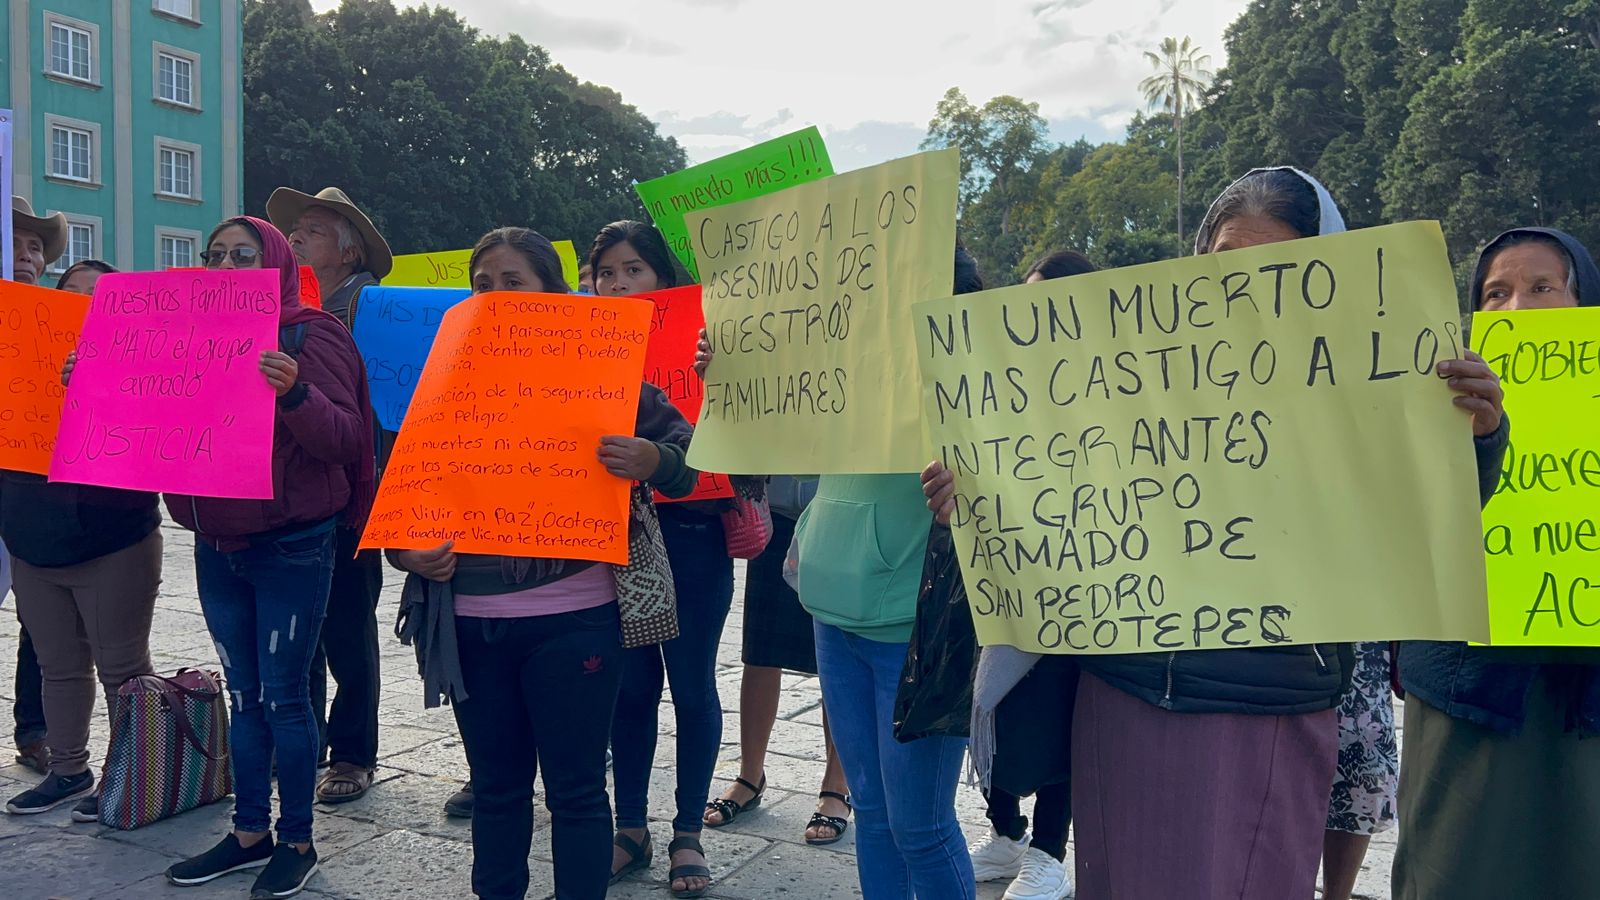 nuestros familiares
os MATÓ el grupo
armado
"JUSTICIA"
San Ped
MAS D
y socorro por
res y paisanos debido
dentro del Pueblo
ención de la seguridad,
Peligro".
más muertes ni daños
por los sicarios de San
Ocotepec"
vivir en Paz", ¡Ocotepec
que Guadalupe Vic. no te pertenece".
JUST
un muerto más!!!
CASTIGO A LOS
ASESINOS DE
NUESTROS
FAMILIARES
NI UN MUERTO !
MAS CASTIGO A LOS
INTEGRANTES
DEL GRUPO
ARMADO DE
SAN PEDRO
OCOTEPEC
GOBIE
Quere
a nue
AC